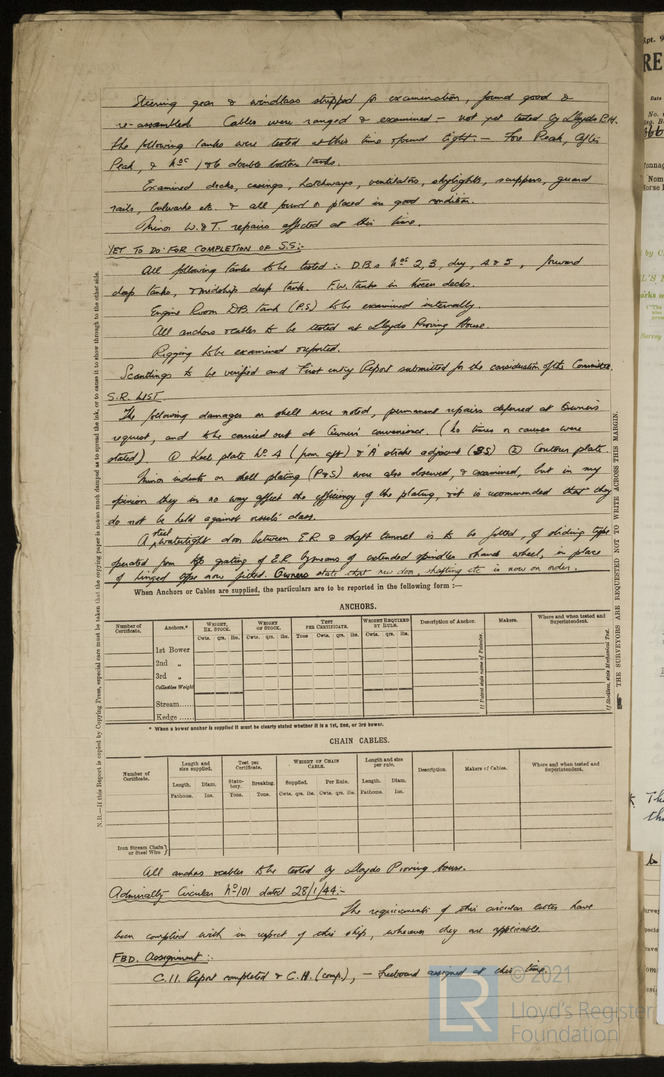 Steering gear & windlass stripped for examination, found good &
re-assembled Cables were ranged & examined — not yet tested by Lloyds P.H.
The following tanks were tested at this time & found tight. — Fore Peak, After
Peak, & Nos 1 & 6 double bottom tanks.
Examined decks, casings, hatchways, ventilators, skylights, scuppers, guard
rails, bulwarks etc. & all found or placed in good condition.
Minor W. & T. repairs effected at this time.
YET TO DO FOR COMPLETION OF S.S:-
All following tanks to be tested :- D.B.s Nos 2, 3, dry, 4 & 5, forward
deep tanks, & midship deep tank. F.W. tanks in tween decks.
Engine Room D.B. tank (P.S) to be examined internally.
All anchors & cables to be tested at Lloyds Proving House.
Rigging to be examined & reported.
Scantlings to be verified and First entry Report submitted for the consideration of the Committee.
S.R. LIST
The following damages on shell were noted, permanent repairs deferred at Owners
request, and to be carried out at Owners' convenience. (No times or causes were
stated) ① Keel plate No 4 (from aft) & 'A' strake adjacent (SS) ② Coutour plate.
Minor indents on shell plating (P & S) were also observed, & examined, but in my
opinion they in no way affect the efficiency of the plating, & it is recommended that they
do not be held against vessels' class.
A steel watertight door between E.R & shaft tunnel is to be fitted, of sliding type
operated from top grating of E.R. by means of extended spindles & hand wheel, in place
of hinged type now fitted. Owners state that new door, shafting etc is now on order.
When Anchors or Cables are supplied, the particulars are to be reported in the following form :—
ANCHORS.
Number of Certificate. Anchors.* WEIGHT, EX. STOCK. WEIGHT OF STOCK. TEST PER CERTIFICATE. WEIGHT REQUIRED BY RULE. Description of Anchor. Makers. Where and when tested and Superintendent.
Cwts. qrs. lbs. Cwts. qrs. lbs. Tons Cwt. qrs. lbs. Cwts. qrs. lbs.
1st Bower
2nd „
3rd „
Collective Weight
Stream
Kedge
If Patent state name of Patentee.
If Stockless, state Mechanical Test.
* When a bower anchor is supplied it must be clearly stated whether it is a 1st, 2nd, or 3rd bower.
CHAIN CABLES.
Number of Certificate. Length and size supplied. Test per Certificate. WEIGHT OF CHAIN CABLE. Length and size per rule. Description. Makers of Cables. Where and when tested and Superintendent.
Length. Diam. Statutory. Breaking. Supplied. Per Rule. Length. Diam.
Fathoms. Ins. Tons. Tons. Cwts. qrs. lbs. Cwts. qrs. lbs. Fathoms. Ins.
Iron Stream Chain or Steel Wire
All anchors & cables to be tested by Lloyds Proving house.
Admiralty Circular No 101 dated 28/1/44:-
The requirements of this circular letter have
been complied with in respect of this ship, wherever they are applicable
FBD. Assignment :-
C.11. Report completed & C.H. (comp), — freeboard assigned at this time.
N.B.—If this Report is copied by Copying Press, especial care must be taken that the copying paper is not so much damped as to spread the ink, or to cause it to show through to the other side.
THE SURVEYORS ARE REQUESTED NOT TO WRITE ACROSS THIS MARGIN.
© 2021
LR
Lloyd's Register
Foundation